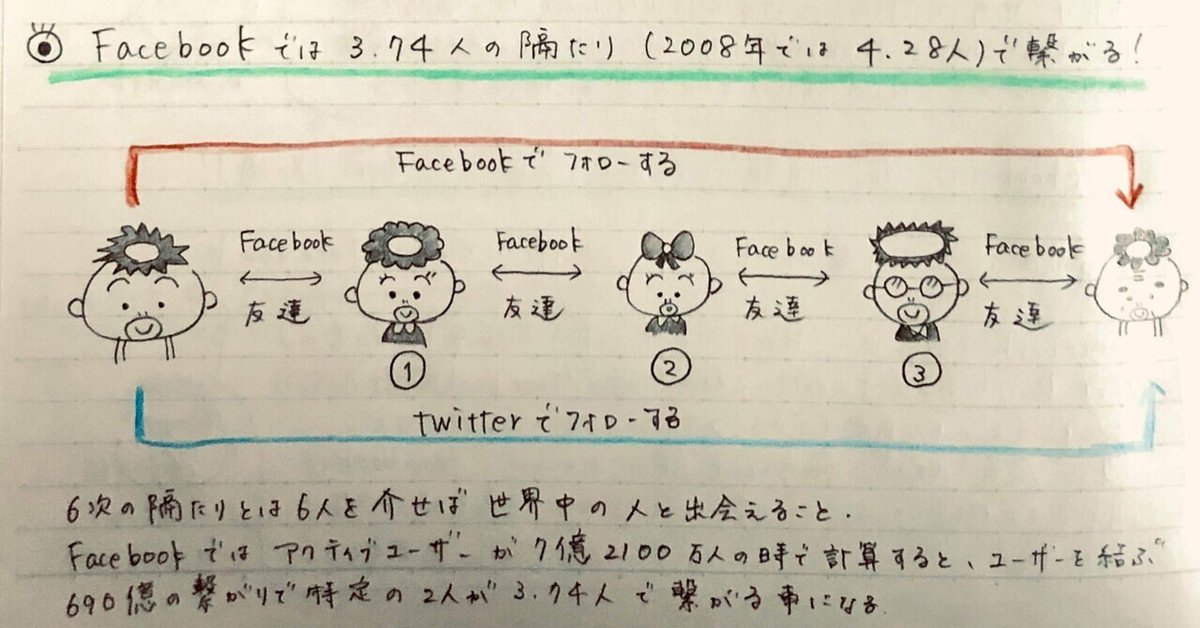 Facebookでは 3.74人の隔たり (2008年では 4.28人)で繋がる!
Facebookで フォローする
Facebook Facebook Facebook Facebook
友達 友達 友達 友達
① ② ③
twitterでフォローする
6次の隔たりとは6人を介せば 世界中の 人と出会えること.
Facebookでは アクティブユーザーが 7億2100万人の時で計算すると、ユーザーを結ぶ
690億の繋がりで特定の2人が 3.74人で 繋がる事になる.